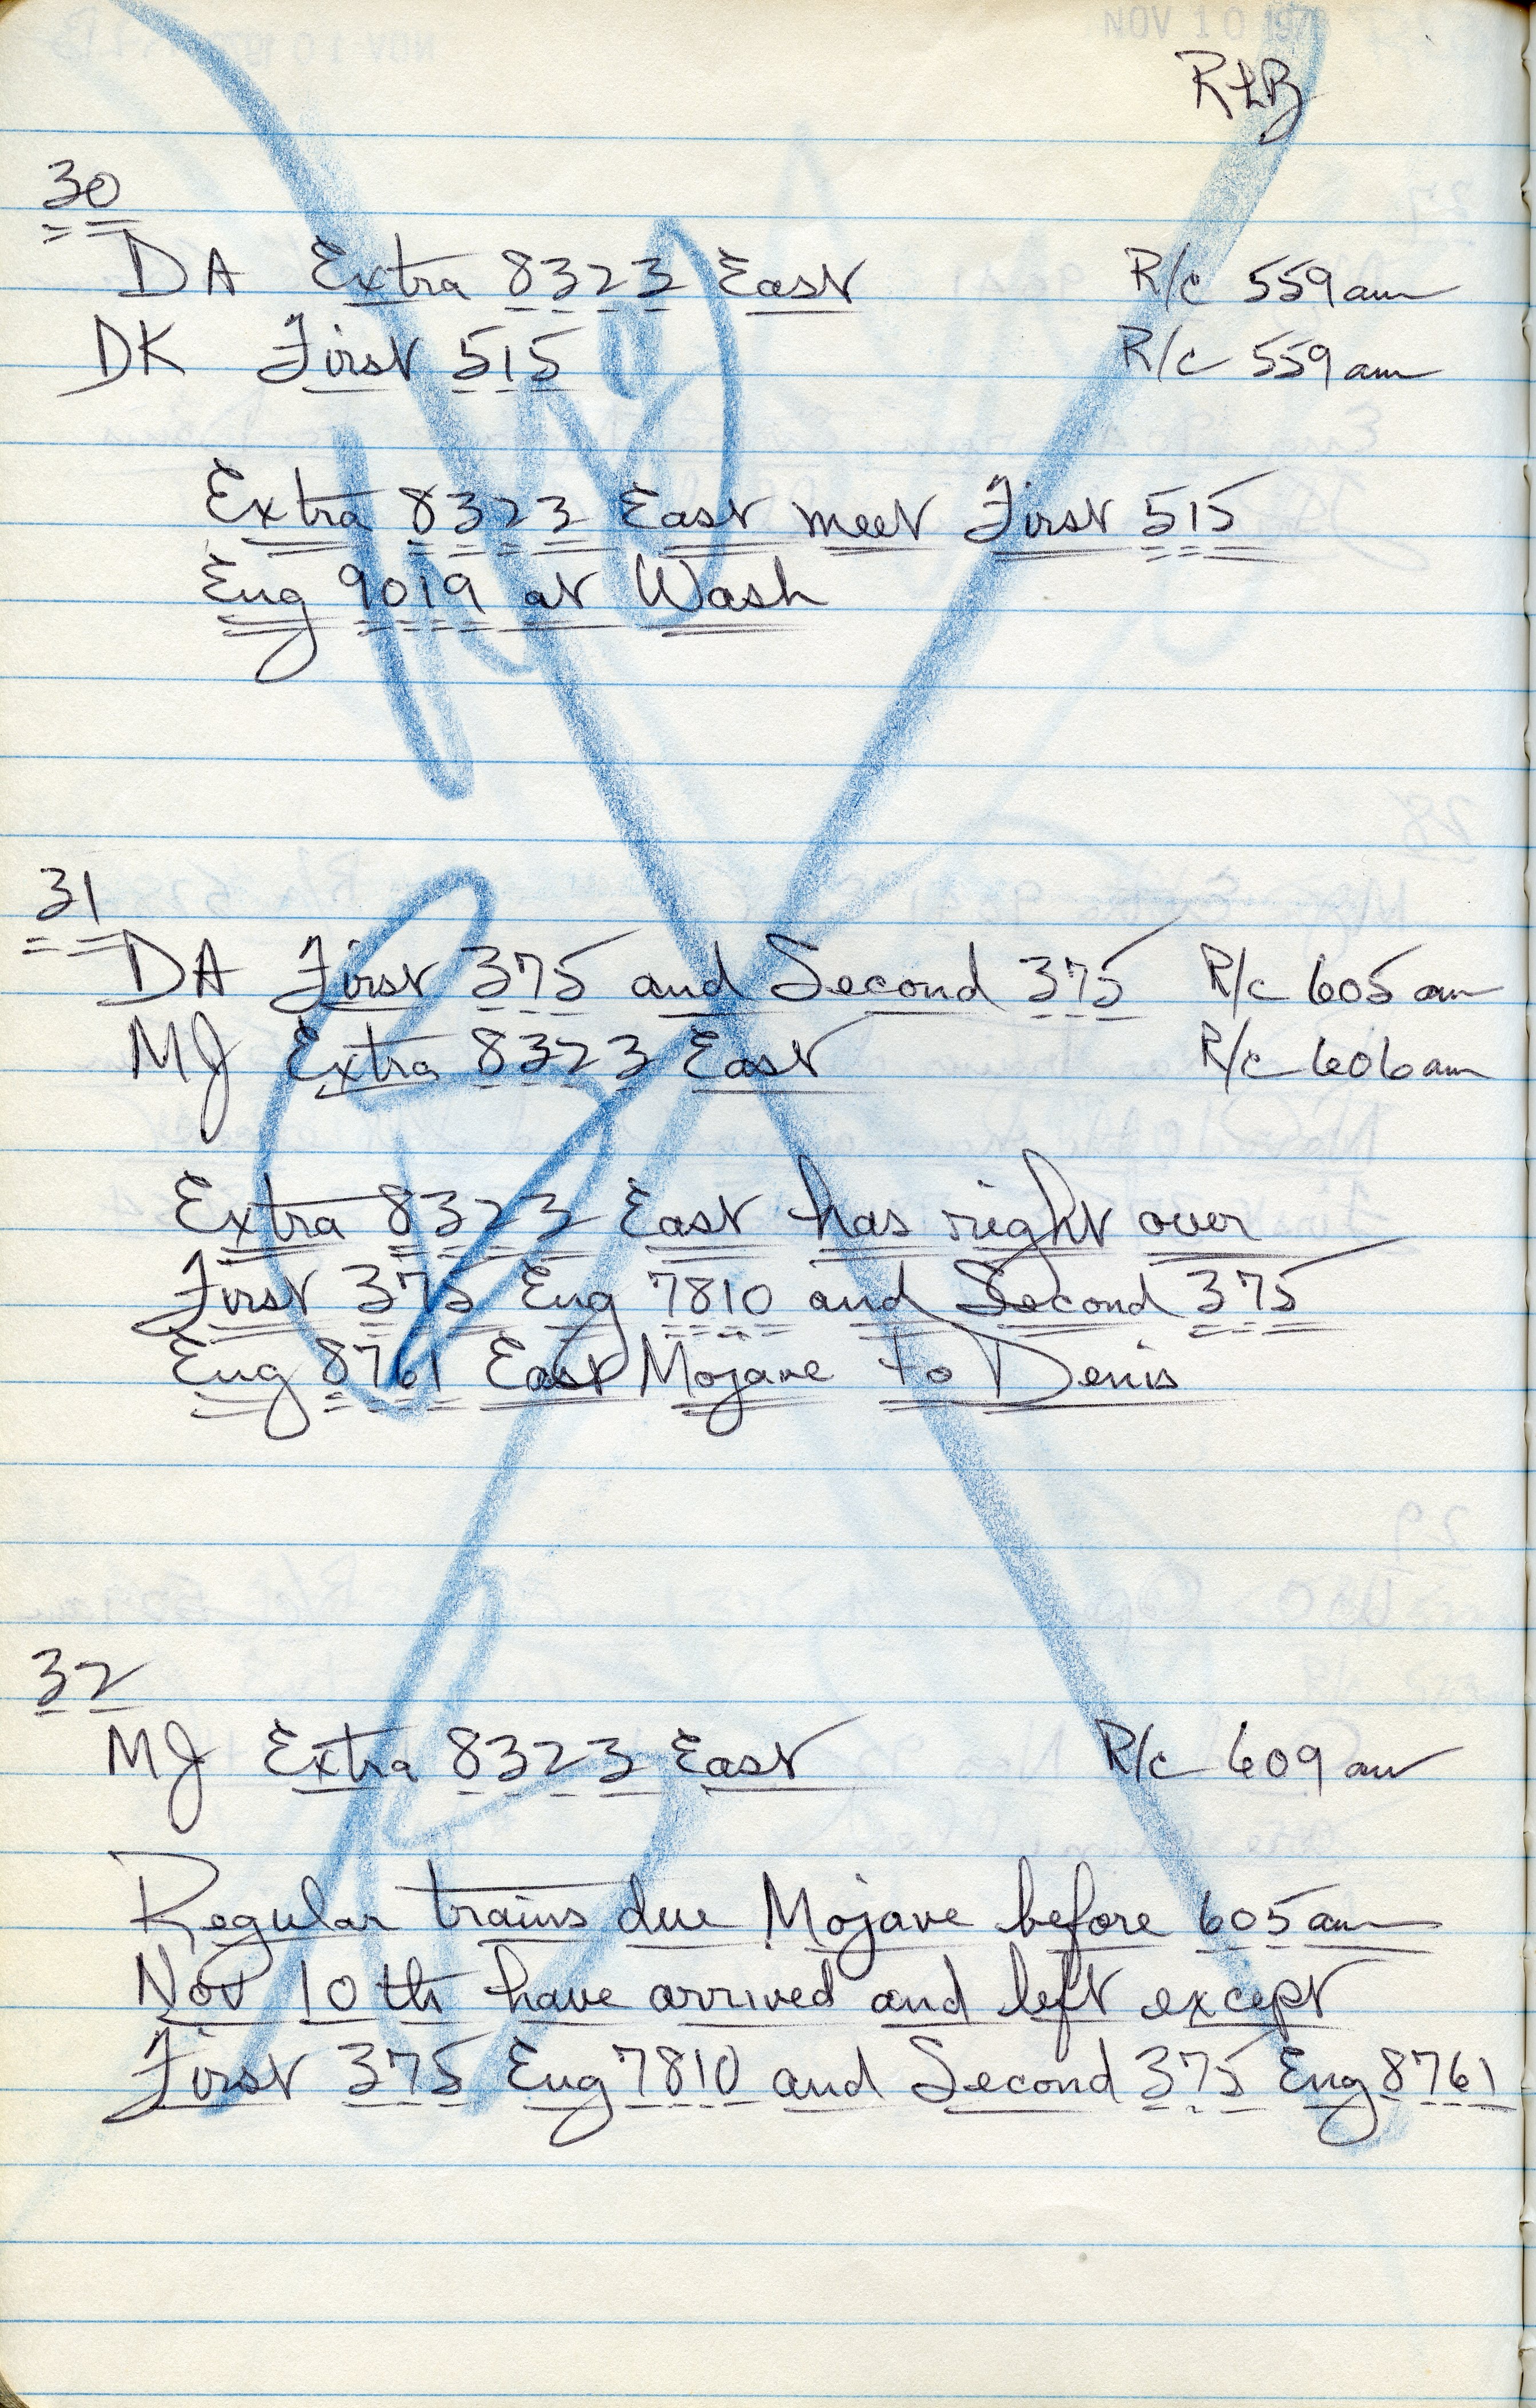 NOV 10 197
RLB
30
DA Extra 8323 East R/c 559 am
DK First 515 R/c 559 am
Extra 8323 East meet First 515
Eng 9019 at Wash
31
DA First 375 and Second 375 R/c 605 am
MJ Extra 8323 East R/c 606 am
Extra 8323 East has right over
First 375 Eng 7810 and Second 375
Eng 8761 East Mojave to Denis
32
MJ Extra 8323 East R/c 609 am
Regular trains due Mojave before 605 am
Nov 10th have arrived and left except
First 375 Eng 7810 and Second 375 Eng 8761